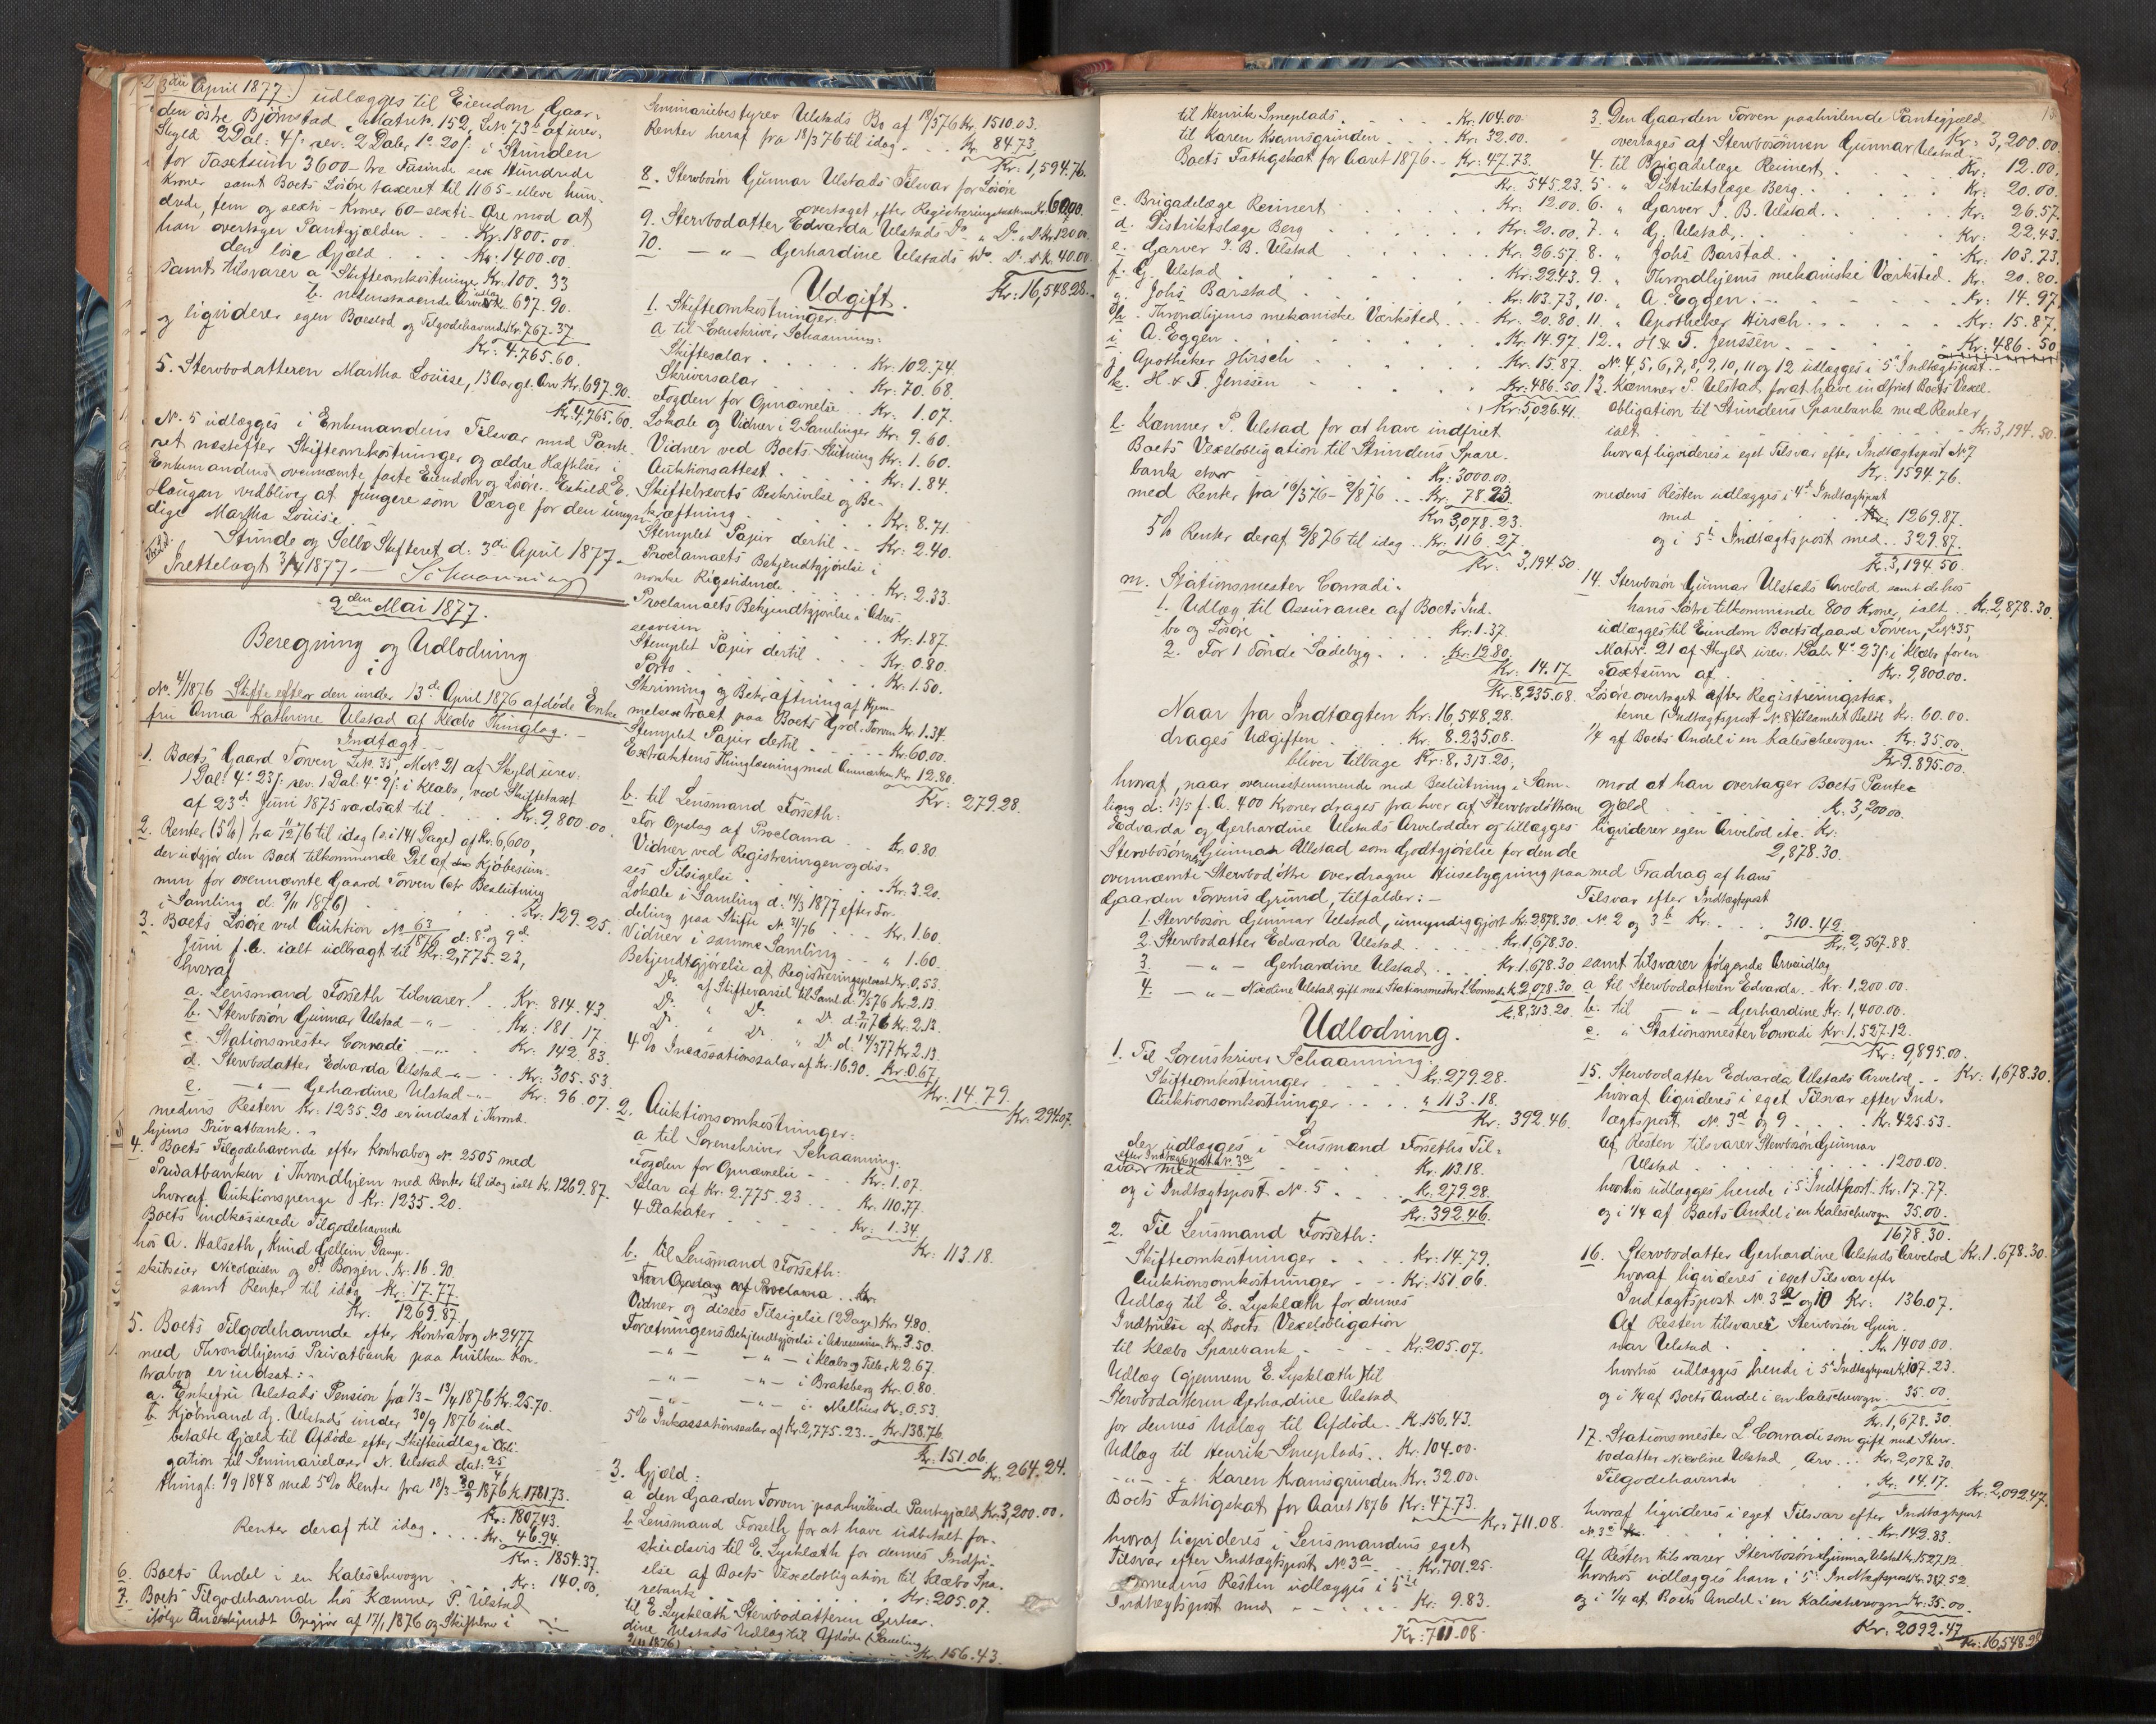 3die April 1877.) udlægges til Eiendom Gaar-
den östre Björnstad, Matrik. 152, Lnr. 73b af urev.
Skyld 2 Dal: 4/: rev. 2 Daler 1o 20/: i Strinden
for Taxtsum 3600 - tre Tusinde sex Hundrede
Kroner samt Boets Lösöre taxeret til 1165 - elleve hun-
drede, fem og sexti - Kroner 60 - sexti - Öre mod at
han overtager Pantgjælden . . . Kr: 1800.00.
den löse Gjæld . . . Kr: 1400.00.
samt tilsvarer a Skifteomkostninger Kr: 100. 33
b. nedenstaaende Arveudlæg K. 697. 90.
og liqviderer egen Boeslod og Tilgodehavende Kr: 767.37
Kr: 4.765.60.
5. Stervbodatteren Martha Louise, 13 Aar gl. Arv Kr. 697.90.
Kr. 4,765.60.
No. 5 udlægges i Enkemandens Tilsvar med Pante-
ret næstefter Skifteomkostninger og ældre Hæftelser i
Enkemandens ovennævnte faste Eiendom og Lösöre. Eskild E.
Haugan vedbliver at fungere som Værge for den umyn-
dige Martha Louise.
Strinde og Selbo Skifteret d. 3die April 1877.
Frettelagt 3/4 1877. — Schaanning
2den Mai 1877.
Beregning og Udlodning
i
No. 4/1876 Skifte efter den under 13de April 1876 afdöde Enke-
fru Anna Kathrine Ulstad af Klæbo Thinglag.
Indtægt
1. Boets Gaard Torven Lnr. 35, Mnr. 21 af Skyld urev:
1 Dal: 4o 23/: rev. 1 Dal: 4o 9/: i Klæbo, ved Skiftetaxt
af 23de Juni 1875 værdsat til . . . Kr: 9,800.00.
2. Renter (5%) fra 11/12 76 til idag (:i 141 Dage) af Kr. 6,600,
der udgjör den Boet tilkommende Del af Kjöbesum-
men for ovennævnte Gaard Torven (efr Beslutning
i Samling d. 9/11 1876) . . . Kr: 129.25.
3. Boets Lösöre ved Auktion No 63/1876 d: 8de og 9de
Juni f. A. ialt udbragt til Kr: 2,775.23,
hvoraf
a. Lensmand Forseth tilsvarer . . Kr: 814.43.
b. Stervbosön Gunnar Ulstad —„— . Kr: 181.17.
c. Stationsmester Conradi —„— . Kr: 142.83.
d. Stervbodatter Edvarda Ulstad —„— . Kr: 305.53.
e. —„— Gerhardine Ulstad —„— Kr: 96.07.
medens Resten Kr: 1235.20 er indsat i Thrond-
hjems Privatbank.
4. Boets Tilgodehavende efter Kontrabog No. 2505 med
Privatbanken i Throndhjem med Renter til idag ialt Kr. 1269.87.
hvoraf Auktionspenge Kr: 1235.20.
Boets indkasserede Tilgodehavende
hos A. Halseth, Knud Gellein, Damp-
skibseier Nicolaisen og P. Borgen. Kr. 16.90.
samt Renter til idag Kr: 17.77
Kr: 1269.87.
5. Boets Tilgodehavende efter Kontrabog No 2477
med Throndhjems Privatbank paa hvilken Kon-
trabog er indsat:
a. Enkefru Ulstads Pension fra 1/3 - 13/4 1876 Kr. 25.70.
b. Kjöbmand G. Ulstads under 30/9 1876 ind-
betalte Gjæld til Afdöde efter Skifteudlæg i Obli-
gation til Seminarielærer N. Ulstad dat: 25
thingl: 1/9 1848 med 5% Renter fra 18/3 - 30/9 1876 K. 1781.73.
Kr: 1807.43.
Renter deraf til idag . . . . Kr: 46.94.
Kr: 1854.37.
6. Boets Andel i en Kaleschevogn . . . Kr: 140.00.
7. Boets Tilgodehavende hos Kæmner P. Ulstad
ifölge Anerkjendt Opgjör af 17/1 1876 og Skiftebrev i
Seminariebestyrer Ulstads Bo af 18/3 76 Kr. 1510.03.
Renter heraf fra 18/3 76 til idag . . . Kr. 84.73.
Kr: 1,594.76.
8. Stervbosön Gunnar Ulstads Tilsvar for Lösöre
overtaget efter Registreringstaxterne Kr. 60.00.
9. Stervbodatter Edvarda Ulstads Do „ Do „ Do Kr. 120.00.
10. —„— Gerhardine Ulstads Do. Do. Do K. 40.00.
Kr: 16,548.28.
Udgift.
1. Skifteomkostninger.
a til Sorenskriver Schaanning:
Skiftesalar . . . Kr: 102.74.
Skriversalar . . . Kr: 70.68.
Fogden for Opnævnelse . . Kr: 1.07.
Lokale og Vidner i 2 Samlinger Kr: 9.60.
Vidner ved Boets Slutning Kr: 1.60.
Auktionsattest . . . Kr: 1.84.
Skiftebrevets Beskrivelse og Be-
kræftning . . . Kr: 8.71.
Stemplet Papir dertil . . . Kr: 2.40.
Proclamaets Bekjendtgjörelse i
norske Rigstidende . . . Kr: 2.33.
Proclamaets Bekjendtgjörelse i Adres-
seavisen . . . Kr: 1.87.
Stemplet Papir dertil . . . Kr: 0.80.
Porto . . . Kr: 1.50.
Skrivning og Bekræftning af Hjem-
melsextract paa Boets Grd. Torven Kr. 1.34.
Stemplet Papir dertil . . . Kr. 60.00.
Extraktens Thinglæsning med Anmærkn. Kr. 12.80.
Kr: 279.28.
b. til Lensmand Forseth:
For Opslag af Proclama . . Kr. 0.80.
Vidner ved Registreringen og dis-
ses Tilsigelse . . . Kr. 3.20.
Lokale i Samling d. 14/3 1877 efter For-
deling paa Skifte No 31/76 . . . Kr. 1.60.
Vidner i samme Samling . . „ 1.60.
Bekjendtgjörelse af Registreringsplacat Kr. 0.53.
Do. af Skiftevarsel til Saml. d: 13/5 76 Kr. 2.13.
Do. „ Do. „ Do. d: 2/11 76 Kr. 2.13.
Do. „ Do. „ Do. d: 14/3 77 Kr. 2.13.
4% Incassationssalar af Kr: 16.90. Kr. 0.67.
Kr: 14.79.
Kr: 294.07.
2. Auktionsomkostninger:
a til Sorenskriver Schaanning.
Fogden for Opnævnelse . . . Kr: 1.07.
Salar af Kr. 2.775.23 . . . Kr. 110.77.
4 Plakater . . . Kr: 1.34.
Kr: 113.18.
b. til Lensmand Forseth:
For Opslag af Proclama . . Kr.
Vidner og disses Tilsigelse (2 Dage) Kr 4.80.
Foretningens Bekjendtgjörelse i Adresseavisen. Kr. 3.50.
—„— —„— i Klæbo og Tiller K 2.67.
—„— —„— i Bratsberg Kr. 0.80.
—„— —„— i Melhus Kr. 0.53.
5% Inkassationssalar af Kr. 2,775.23 . . Kr. 138.76.
Kr: 151.06.
Kr: 264.24.
3. Gjæld:
a den Gaarden Torven paahvilende Pantegjæld Kr. 3,200.00.
b Lensmand Forseth for at have udbetalt for-
skudsvis til E. Lysklæth for dennes Indfri-
else af Boets Vexelobligation til Klæbo Spa-
rebank . . . Kr: 205.07.
til E. Lysklæth Stervbodatteren Gerhar-
dine Ulstads Udlæg til Afdöde (Samling
9/11 1876) . . . Kr. 156.43.
til Henrik Smeplads . . . Kr. 104.00.
til Karen Kvamsgrinden . . . Kr: 32.00.
Boets Fattigskat for Aaret 1876 . . Kr: 47.73.
Kr: 545.23.
c. Brigadelæge Reinert . . . Kr: 12.00.
d. Distriktslæge Berg . . . Kr: 20.00.
e. Garver J. B. Ulstad . . . Kr: 26.57.
f. G. Ulstad . . . Kr: 22.43.
g. Johs Barstad . . . Kr: 103.73.
h. Throndhjems mekaniske Værksted . . . Kr: 20.80.
i A. Eggen . . . Kr: 14.97.
j Apotheker Hirsch . . . Kr: 15.87.
k. H & F. Jenssen . . . Kr: 486.50.
Kr: 5026.41.
l. Kæmner P. Ulstad for at have indfriet
Boets Vexelobligation til Strindens Spare-
bank stor . . . Kr: 3000.00.
med Renter fra 16/3 76 - 2/8 76 . . Kr: 78.23.
Kr: 3,078.23.
5% Renter deraf 2/8 76 til idag . . Kr: 116.27.
Kr: 3,194.50.
m. Stationsmester Conradi:
1. Udlæg til Assurance af Boets Ind-
bo og Lösöre . . . Kr: 1.37.
2. For 1 Tönde Sædebyg . . . Kr: 12.80.
Kr: 14.17.
Kr. 8,235.08.
Naar fra Indtægten Kr: 16,548.28.
drages Udgiften . . . Kr. 8.235.08.
bliver tilbage Kr: 8,313.20,
hvoraf, naar overensstemmende med Beslutning i Sam-
ling d: 13/5 f. A. 400 Kroner drages fra hver af Stervbodöttrene
Edvarda og Gerhardine Ulstads Arvelodder og tillægges
Stervbosönnen Gunnar Ulstad som Godtgjörelse for den de
ovennævnte Stervbodöttre overdragne Husebygning paa
Gaarden Torvens Grund, tilfalder:
1. Stervbosön Gunnar Ulstad, umyndiggjort Kr. 2878.30.
2. Stervbodatter Edvarda Ulstad . . . Kr. 1,678.30.
3. —„— Gerhardine Ulstad . . . Kr. 1.678.30
4. —„— Nicoline Ulstad, gift med Stationsmester L. Conradi Kr. 2,078.30.
Kr. 8,313.20.
Udlodning.
1. Til Sorenskriver Schaanning:
Skifteomkostninger . . . Kr: 279.28.
Auktionsomkostninger . . . „ 113.18.
Kr: 392.46.
der udlægges i Lensmand Forseths Til-
svar efter Indtægtspost No. 3a med . . . Kr: 113.18.
og i Indtægtspost No. 5 . . . K. 279.28.
Kr: 392.46.
2. Til Lensmand Forseth:
Skifteomkostninger . . . Kr: 14.79.
Auktionsomkostninger . . . Kr: 151.06.
Udlæg til E. Lysklæth for dennes
Indfrielse af Boets Vexelobligation
til Klæbo Sparebank . . . Kr: 205.07.
Udlæg (gjennem E. Lysklæth) til
Stervbodatteren Gerhardine Ulstad
for dennes Udlæg til Afdöde . . K. 156.43.
Udlæg til Henrik Smeplads . . Kr: 104.00.
„ „ Karen Kvamsgrinden Kr: 32.00.
Boets Fattigskat for Aaret 1876 Kr: 47.73.
Kr: 711.08.
hvoraf liqvideres i Lensmandens eget
Tilsvar efter Indtægtspost No 3a . . Kr: 701.25.
medens Resten udlægges i 5te
Indtægtspost med . . . Kr: 9.83.
Kr: 711.08.
3. Den Gaarden Torven paahvilende Pantegjæld
overtages af Stervbosönnen Gunnar Ulstad . Kr: 3,200.00.
4. til Brigadelæge Reinert . . . Kr: 12.00.
5. „ Distriktslæge Berg . . . Kr: 20.00.
6. „ Garver J. B. Ulstad . . . Kr: 26.57.
7. „ G. Ulstad . . . Kr: 22.43.
8. „ Johs Barstad . . . Kr: 103.73.
9. „ Throndhjems mekaniske Værksted. Kr. 20.80.
10. „ A. Eggen . . . Kr: 14.97.
11. „ Apotheker Hirsch . . . Kr: 15.87.
12. „ H & F. Jenssen . . . Kr: 486.50
No. 4, 5, 6, 7, 8, 9, 10, 11 og 12 udlægges i 5te Indtægtspost.
13. Kæmner P. Ulstad for at have indfriet Boets Vexel-
obligation til Strindens Sparebank med Renter
ialt . . . Kr. 3,194.50.
hvoraf liqvideres i eget Tilsvar efter Indtægtspost No 7
Kr. 1594.76.
medens Resten udlægges i 4de Indtægtspost
med . . . Kr: 1269.87.
og i 5te Indtægtspost med . . 329.87.
K. 3,194.50.
14. Stervbosön Gunnar Ulstads Arvelod samt de hos
hans Söstre tilkommende 800 Kroner, ialt . . Kr. 2,878.30.
udlægges til Eiendom Boets Gaard Torven, Lnr. 35,
Matr. 21 af Skyld urev. 1 Dalr 4o 23/: i Klæbo for en
Taxtsum af . . . Kr: 9,800.00.
Lösöre overtaget efter Registreringstax-
terne (Indtægtspost No. 8) tilsamlet Belöb Kr: 60.00.
1/4 af Boets Andel i en Kaleschevogn . Kr: 35.00.
Kr. 9.895.00.
mod at han overtager Boets Pante-
gjæld . . . Kr. 3,200.00.
liqviderer egen Arvelod etc. Kr:
2,878.30.
med Fradrag af hans
Tilsvar efter Indtægtspost
No 2 og 3b Kr. . . . 310.42.
Kr. 2,567.88.
samt tilsvarer fölgende Arveudlæg
a til Stervbodatteren Edvarda . . Kr: 1,200.00.
b. til —„— Gerhardine Kr: 1,400.00.
c. „ Stationsmester Conradi Kr: 1,527.12.
Kr: 9,895.00.
15. Stervbodatter Edvarda Ulstads Arvelod . . Kr: 1,678.30.
hvoraf liqvideres i eget Tilsvar efter Ind-
tægtspost No. 3d og 9 . . . K. 425.53.
Af Resten tilsvarer Stervbosön Gunnar
Ulstad . . . 1200.00.
hvorhos udlægges hende i 5te Indtpost. Kr: 17.77.
og i 1/4 af Boets Andel i en Kaleschevogn 35.00.
1678.30.
16. Stervbodatter Gerhardine Ulstads Arvelod Kr. 1.678.30.
hvoraf liqvideres i eget Tilsvar efter
Indtægtspost No. 3e og 10 Kr: 136.07.
Af Resten tilsvarer Stervbosön Gun-
nar Ulstad . . . Kr. 1400.00.
hvorhos udlægges hende i 5te Indtægtspost Kr. 107.23.
og i 1/4 af Boets Andel i en Kaleschevogn . 35.00.
Kr. 1,678.30.
17. Stationsmester L. Conradi som gift med Sterv-
bodatter Nicoline Ulstad, Arv . . . Kr. 2,078.30.
Tilgodehavende . . . Kr. 14.17.
Kr: 2,092.47.
hvoraf liqvideres i eget Tilsvar efter Indtægtspost
No. 3c . . . Kr. 142.83.
Af Resten tilsvarer Stervbosön Gunnar Ulstad Kr. 1527.12
hvorhos udlægges ham i 5te Indtægtspost Kr. 387.52.
og i 1/4 af Boets Andel i en Kaleschevogn Kr: 35.00.
Kr: 2092.47
Kr: 16,548.28